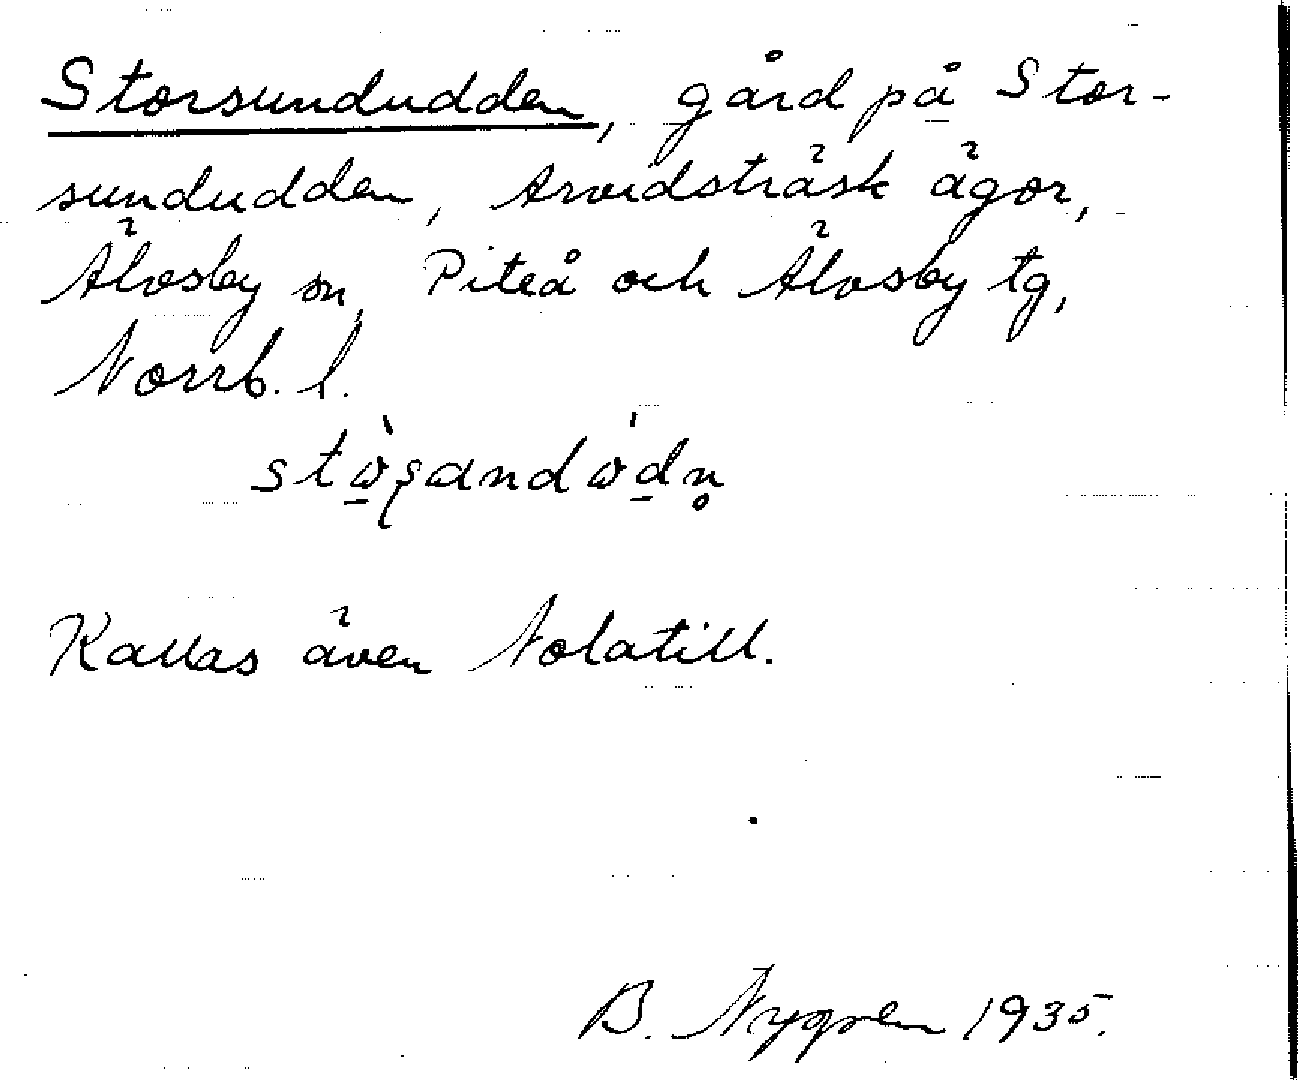 Storsundudden, gård på Stor-
sundudden, Arvidsträsk ägor,
Älvsby sn, Piteå och Älvsby tg,
Norrb. l.
Kallas även Nolatill.
B. Nygren 1935.